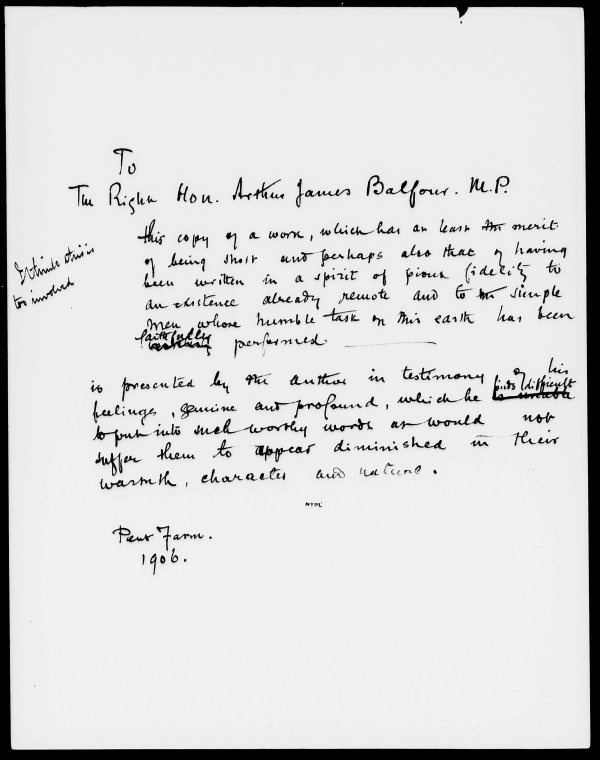 To
The Right Hon. Arthur James Balfour. M.P.
I think this is
too involved
this copy of a work, which has at least the merit
of being short and perhaps also that of having
been written in a spirit of pious fidelity to
an existence already remote and to the simple
men whose humble task on this earth has been
faithfully
performed
is presented by the author in testimony of his
feelings, genuine and profound, which he finds difficult
is unable
to put into such worthy words as would not
suffer them to appear diminished in their
warmth, character and nature.
Pent Farm.
1906.